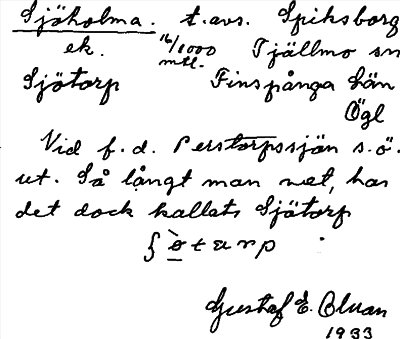 Sjöholma. t.avs. Spiksborg
ek. 16/1000 mtl. Tjällmo sn
Sjötorp Finspånga län
Ögl
Vid f.d. Perstorpssjön s.ö.
ut. Så långt man vet, har
det dock kallats Sjötorp
Gustaf E. Bluan
1933